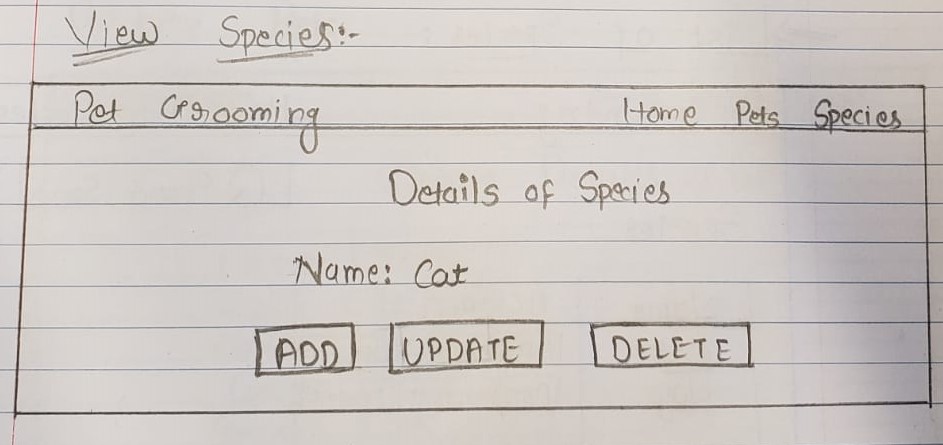 View Species:-
Pet Grooming Home Pets Species
Details of Species
Name: Cat
ADD UPDATE DELETE